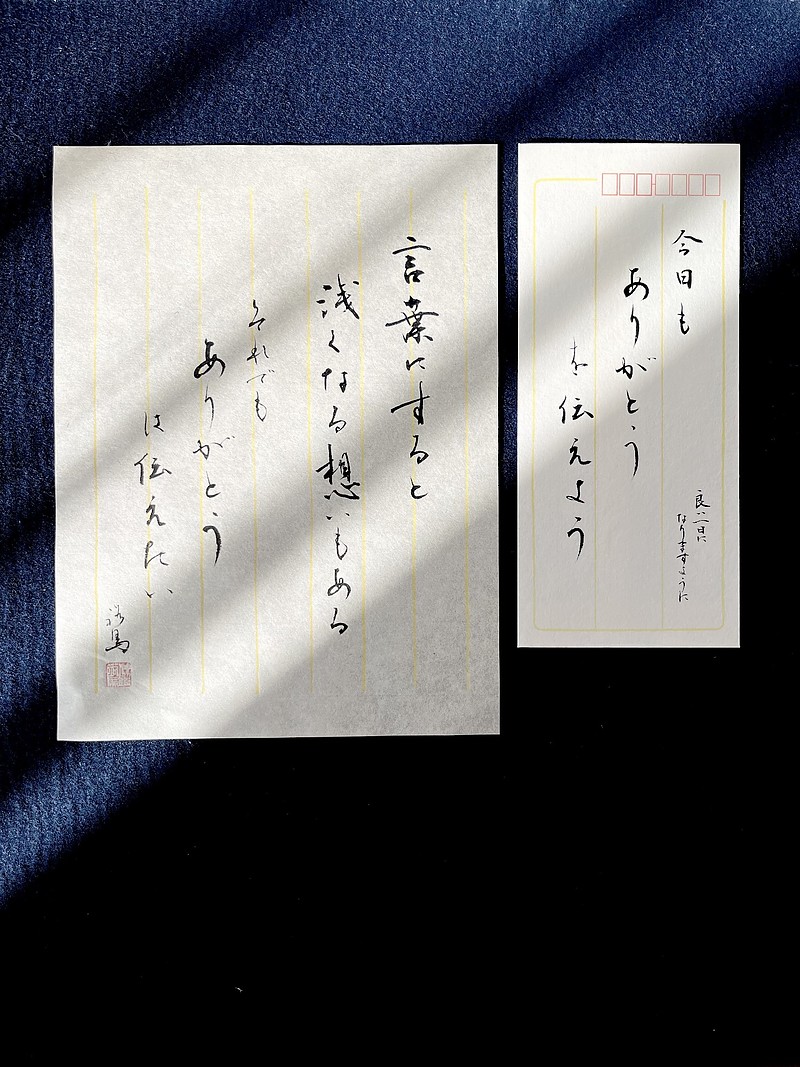 言葉にすると
浅くなる想いもある
それでも
ありがとう
は伝えたい
今日も
ありがとう
を伝えよう
良い一日に
なりますように